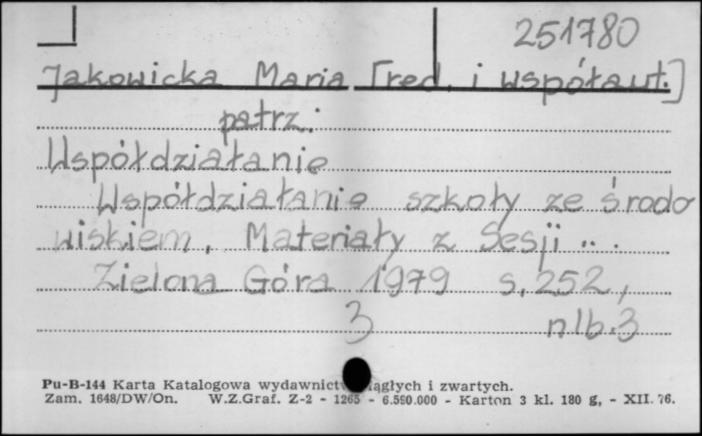 251780
Jakowicka Maria [red. i współaut.]
patrz:
Współdziałanie
Współdziałanie szkoły ze środo
wiskiem. Materiały z Sesji...
Zielona Góra 1979 s. 252,
3 nlb. 3
Pu-B-144 Karta Katalogowa wydawnictw ciągłych i zwartych.
Zam. 1648/DW/On. W.Z.Graf. Z-2 - 1265 - 6.590.000 - Karton 3 kl. 180 g, - XII. 76.